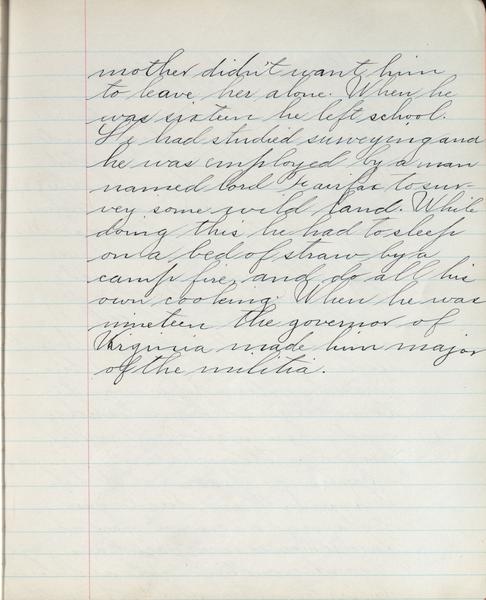 mother didn't want him
to leave her alone. When he
was sixteen he left school.
He had studied surveying and
he was employed by a man
named Lord Fairfax to sur-
vey some wild land. While
doing this he had to sleep
on a bed of straw by a
camp fire, and do all his
own cooking. When he was
nineteen the governor of
Virginia made him major
of the militia.